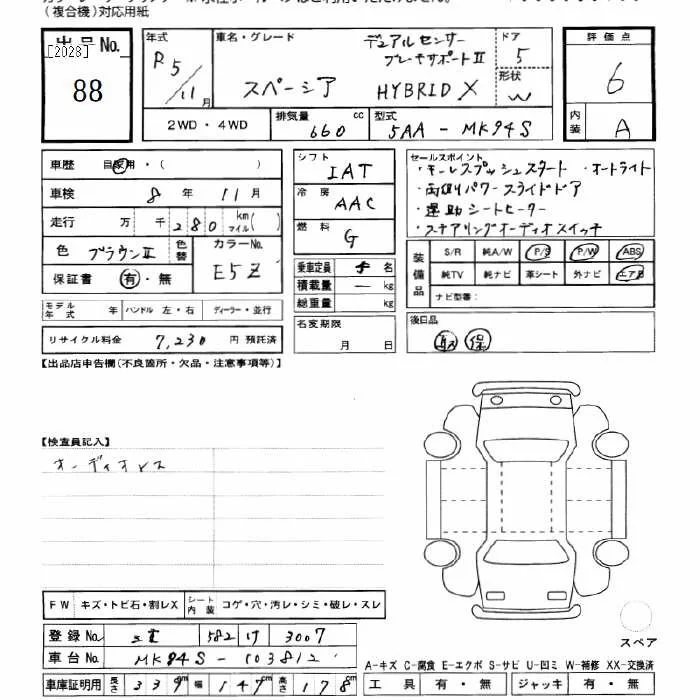 (複合機)対応用紙
出品No.
[2028]
88
年式 R5/11月
車名・グレード デュアルセンサー ブレーキサポートⅡ
スペーシア HYBRID X
ドア 5
形状 W
評価点 6
内装 A
2WD・4WD
排気量 660 cc
型式 5AA-MK94S
車歴 自家用・( )
車検 8年11月
走行 万 千 280 km マイル( )
色 ブラウンⅡ 色替
カラーNo. E5Z
保証書 有・無
モデル年式 年 ハンドル 左・右 ディーラー・並行
リサイクル料金 7,230 円 預託済
シフト IAT
冷房 AAC
燃料 G
乗車定員 名
積載量 ― kg
総重量 kg
名変期限 月 日
セールスポイント
・キーレスプッシュスタート ・オートライト
・両側パワースライドドア
・運助シートヒーター
・ステアリングオーディオスイッチ
装備品 S/R 純A/W P/S P/W ABS
純TV 純ナビ 革シート 外ナビ エアB
ナビ型番:
後日品
取 保
【出品店申告欄(不良箇所・欠品・注意事項等)】
【検査員記入】
オーディオレス
FW キズ・トビ石・割レX シート内装 コゲ・穴・汚レ・シミ・破レ・スレ
登録No. 582 け 3007
車台No. MK94S-103812
車庫証明用 長さ 339cm 幅 147cm 高さ 178cm
スペア
A-キズ C-腐食 E-エクボ S-サビ U-凹ミ W-補修 XX-交換済
工具 有・無 ジャッキ 有・無